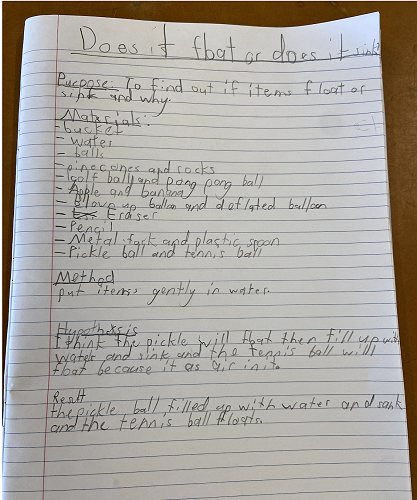 Does it float or does it sink?
Purpose: To find out if items float or
sink and why.
Materials:
- bucket
- water
- balls
- pinecones and rocks
- Golf ball and pong pong ball
- Apple and banana
- Blown up ballon and deflated balloon
- Eraser
- Pencil
- Metal fork and plastic spoon
- Pickle ball and tennis ball
Method
put items gently in water.
Hypothesis
I think the pickle will float then fill up with
water and sink and the tennis ball will
float because it as air in it.
Result
the pickle ball filled up with water and sank
and the tennis ball floats.